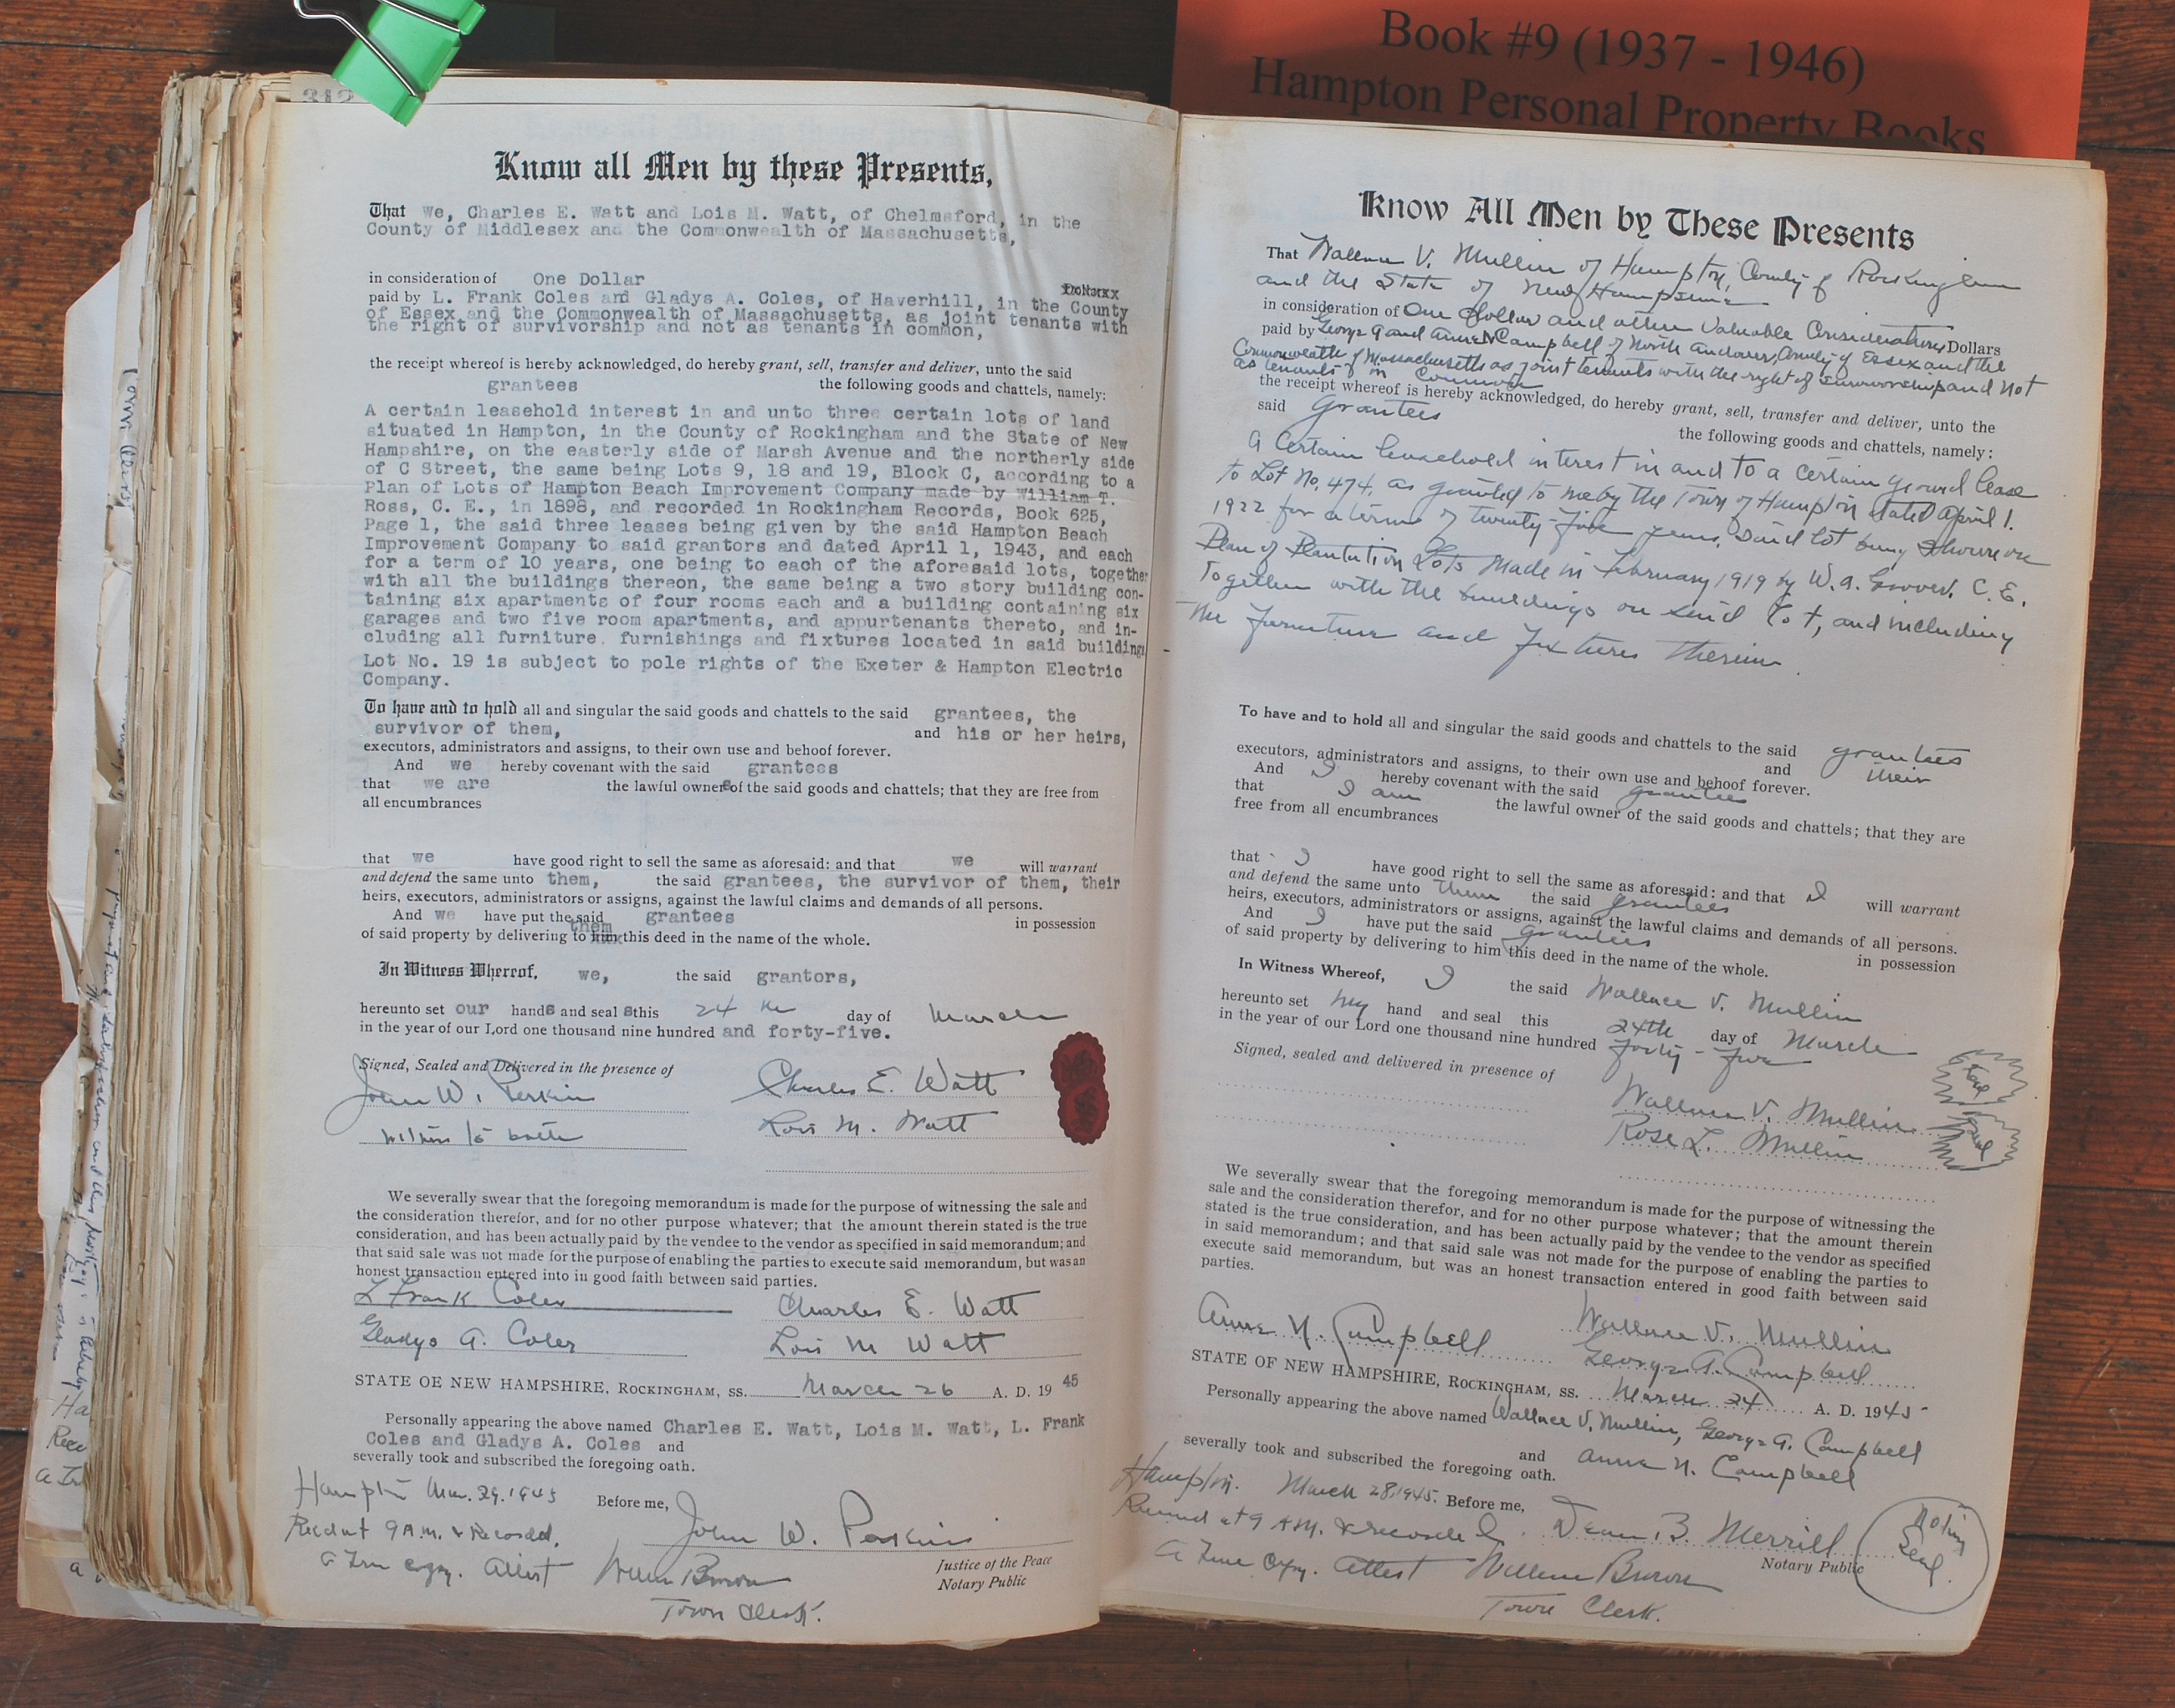 Book #9 (1937 - 1946)
Hampton Personal Property Books
312
Know all Men by these Presents,
That we, Charles E. Watt and Lois M. Watt, of Chelmsford, in the
County of Middlesex and the Commonwealth of Massachusetts,
in consideration of One Dollar
paid by L. Frank Coles and Gladys A. Coles, of Haverhill, in the County
of Essex and the Commonwealth of Massachusetts, as joint tenants with
the right of survivorship and not as tenants in common,
the receipt whereof is hereby acknowledged, do hereby grant, sell, transfer and deliver, unto the said
grantees the following goods and chattels, namely:
A certain leasehold interest in and unto three certain lots of land
situated in Hampton, in the County of Rockingham and the State of New
Hampshire, on the easterly side of Marsh Avenue and the northerly side
of C Street, the same being Lots 9, 18 and 19, Block C, according to a
Plan of Lots of Hampton Beach Improvement Company made by William T.
Ross, C. E., in 1898, and recorded in Rockingham Records, Book 625,
Page 1, the said three leases being given by the said Hampton Beach
Improvement Company to said grantors and dated April 1, 1943, and each
for a term of 10 years, one being to each of the aforesaid lots, together
with all the buildings thereon, the same being a two story building con-
taining six apartments of four rooms each and a building containing six
garages and two five room apartments, and appurtenants thereto, and in-
cluding all furniture, furnishings and fixtures located in said buildings.
Lot No. 19 is subject to pole rights of the Exeter & Hampton Electric
Company.
To have and to hold all and singular the said goods and chattels to the said grantees, the
survivor of them, and his or her heirs,
executors, administrators and assigns, to their own use and behoof forever.
And we hereby covenant with the said grantees
that we are the lawful owners of the said goods and chattels; that they are free from
all encumbrances
that we have good right to sell the same as aforesaid: and that we will warrant
and defend the same unto them, the said grantees, the survivor of them, their
heirs, executors, administrators or assigns, against the lawful claims and demands of all persons.
And we have put the said grantees in possession
them
of said property by delivering to him this deed in the name of the whole.
In Witness Whereof, we, the said grantors,
hereunto set our hands and seals this 24 th day of March
in the year of our Lord one thousand nine hundred and forty-five.
Signed, Sealed and Delivered in the presence of
John W. Perkins Charles E. Watt
witness to both Lois M. Watt
We severally swear that the foregoing memorandum is made for the purpose of witnessing the sale and
the consideration therefor, and for no other purpose whatever; that the amount therein stated is the true
consideration, and has been actually paid by the vendee to the vendor as specified in said memorandum; and
that said sale was not made for the purpose of enabling the parties to execute said memorandum, but was an
honest transaction entered into in good faith between said parties.
L Frank Coles Charles E. Watt
Gladys A. Coles Lois M Watt
STATE OE NEW HAMPSHIRE, ROCKINGHAM, ss. March 26 A. D. 19 45
Personally appearing the above named Charles E. Watt, Lois M. Watt, L. Frank
Coles and Gladys A. Coles and
severally took and subscribed the foregoing oath.
Hampton Mar. 29, 1945 Before me, John W. Perkins
Rec'd at 9 A.M. & Recorded. Justice of the Peace
Notary Public
A True copy. Attest William Brown
Town Clerk.
Know All Men by These Presents
That Wallace V. Mullin of Hampton, County of Rockingham
and the State of New Hampshire
in consideration of One dollar and other Valuable Considerations Dollars
paid by George A and Anna N Campbell of North Andover, County of Essex and the
Commonwealth of Massachusetts as joint tenants with the right of survivorship and not
as tenants in Common
the receipt whereof is hereby acknowledged, do hereby grant, sell, transfer and deliver, unto the
said grantees the following goods and chattels, namely:
A Certain leasehold interest in and to a certain ground lease
to Lot No. 474, as granted to me by the Town of Hampton dated April 1.
1922 for a term of twenty-five years, said lot being shown on
Plan of Plantation Lots made in February 1919 by W. A. Grover. C. E.
Together with the buildings on said lot, and including
the furniture and fixtures therein
To have and to hold all and singular the said goods and chattels to the said grantees
and their
executors, administrators and assigns, to their own use and behoof forever.
And I hereby covenant with the said grantees
that I am the lawful owner of the said goods and chattels; that they are
free from all encumbrances
that I have good right to sell the same as aforesaid: and that I will warrant
and defend the same unto them the said grantees
heirs, executors, administrators or assigns, against the lawful claims and demands of all persons.
And I have put the said grantees in possession
of said property by delivering to him this deed in the name of the whole.
In Witness Whereof, I the said Wallace V. Mullin
hereunto set my hand and seal this 24th day of March
in the year of our Lord one thousand nine hundred forty-five
Signed, sealed and delivered in presence of
Wallace V. Mullin Seal
Rose L. Mullin Seal
We severally swear that the foregoing memorandum is made for the purpose of witnessing the
sale and the consideration therefor, and for no other purpose whatever; that the amount therein
stated is the true consideration, and has been actually paid by the vendee to the vendor as specified
in said memorandum; and that said sale was not made for the purpose of enabling the parties to
execute said memorandum, but was an honest transaction entered in good faith between said
parties.
Anna N. Campbell Wallace V. Mullin
George A. Campbell
STATE OF NEW HAMPSHIRE, ROCKINGHAM, ss. March 24 A. D. 1945
Personally appearing the above named Wallace V. Mullin, George A. Campbell
and Anna N. Campbell
severally took and subscribed the foregoing oath.
Hampton. March 28, 1945. Before me, Dean B. Merrill
Received at 9 A.M. & recorded Notary Public
Notary Seal
A True Copy. Attest William Brown
Town Clerk.